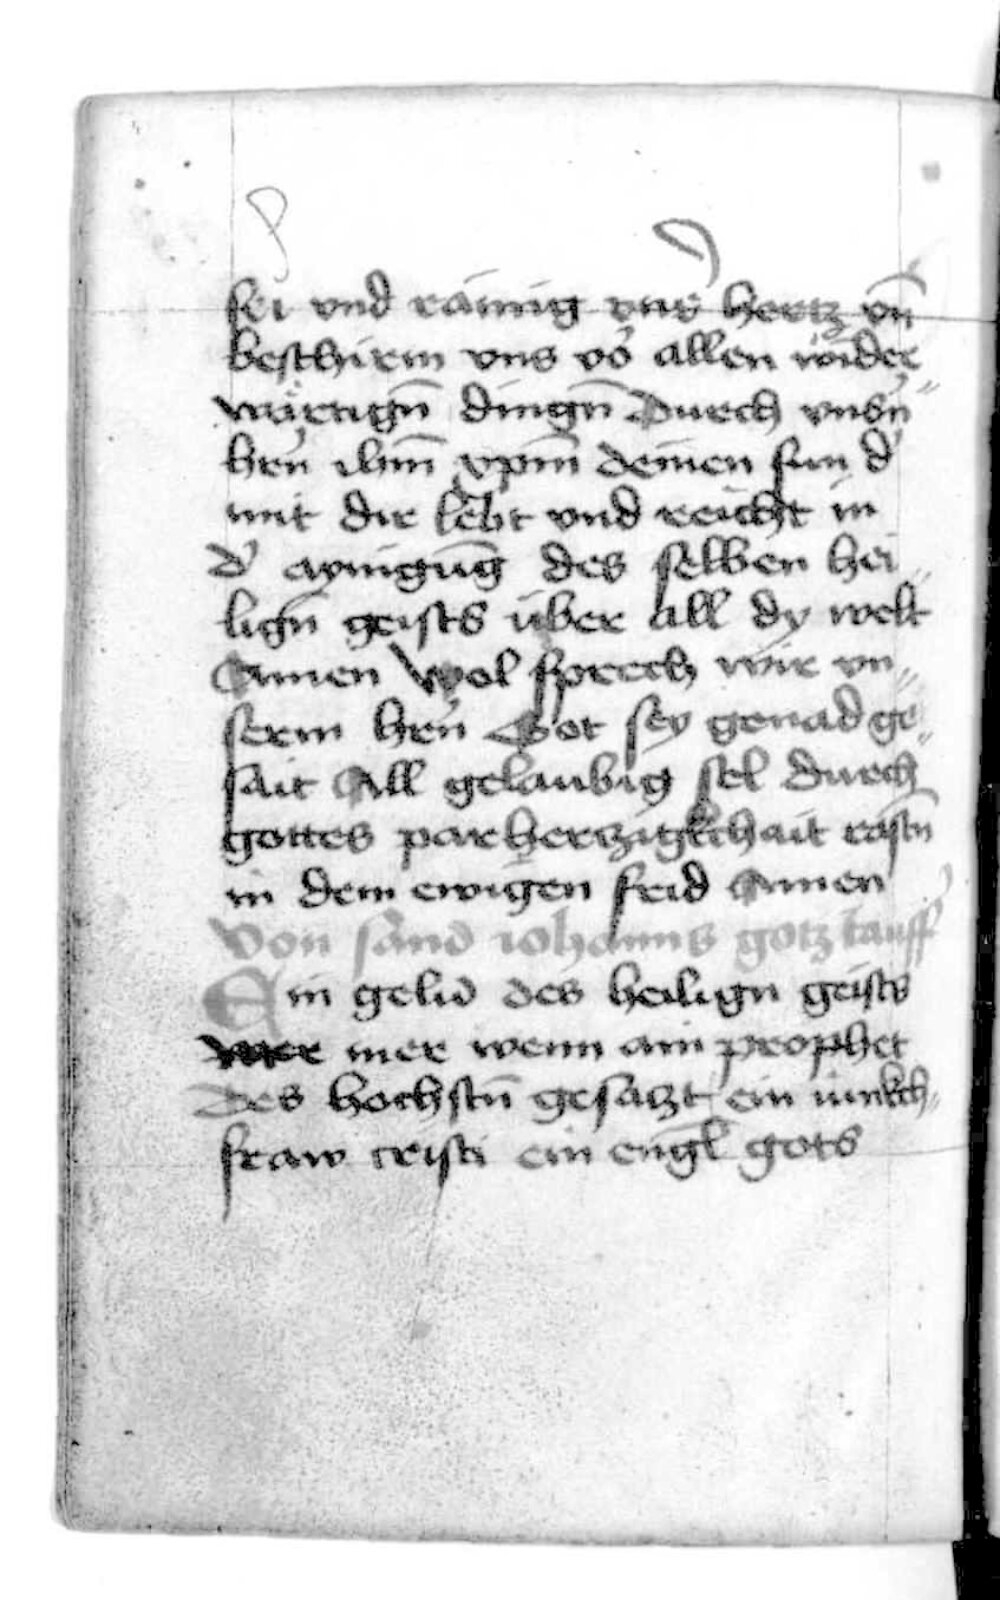 sei vnd räinig vnē hertz vn̄
beschirm vns vō allen wider
wärtign̄ dingn̄ Durch vnsn̄
hrn̄ ihm̄ xpm̄ deinen sun d'
mit dir lebt vnd reicht in
d' aynigūg des selben hei
lign̄ geists über all dy welt
Amen Wol sprech wir vn
serm hrn̄ Got sey genad ge
sait All gelaubig sel durch
gottes parhertzigkchait rastn̄
in dem ewigen frid Amen
Von sand iohanns gotz tauff
Ein gelid des heilign geists
mer wenn ain prophet
des hochstn̄ gesatzt ein iunkch
fraw cristi ein engl gots